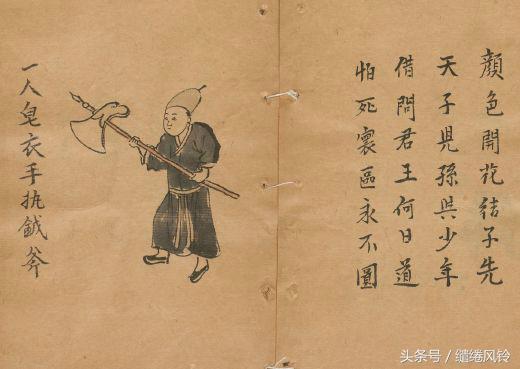 顏色開花結子先
天子兒孫與少年
借問君王何日道
怕死寰區永不圓
一人皂衣手执鉞斧
头条号／缱绻风铃